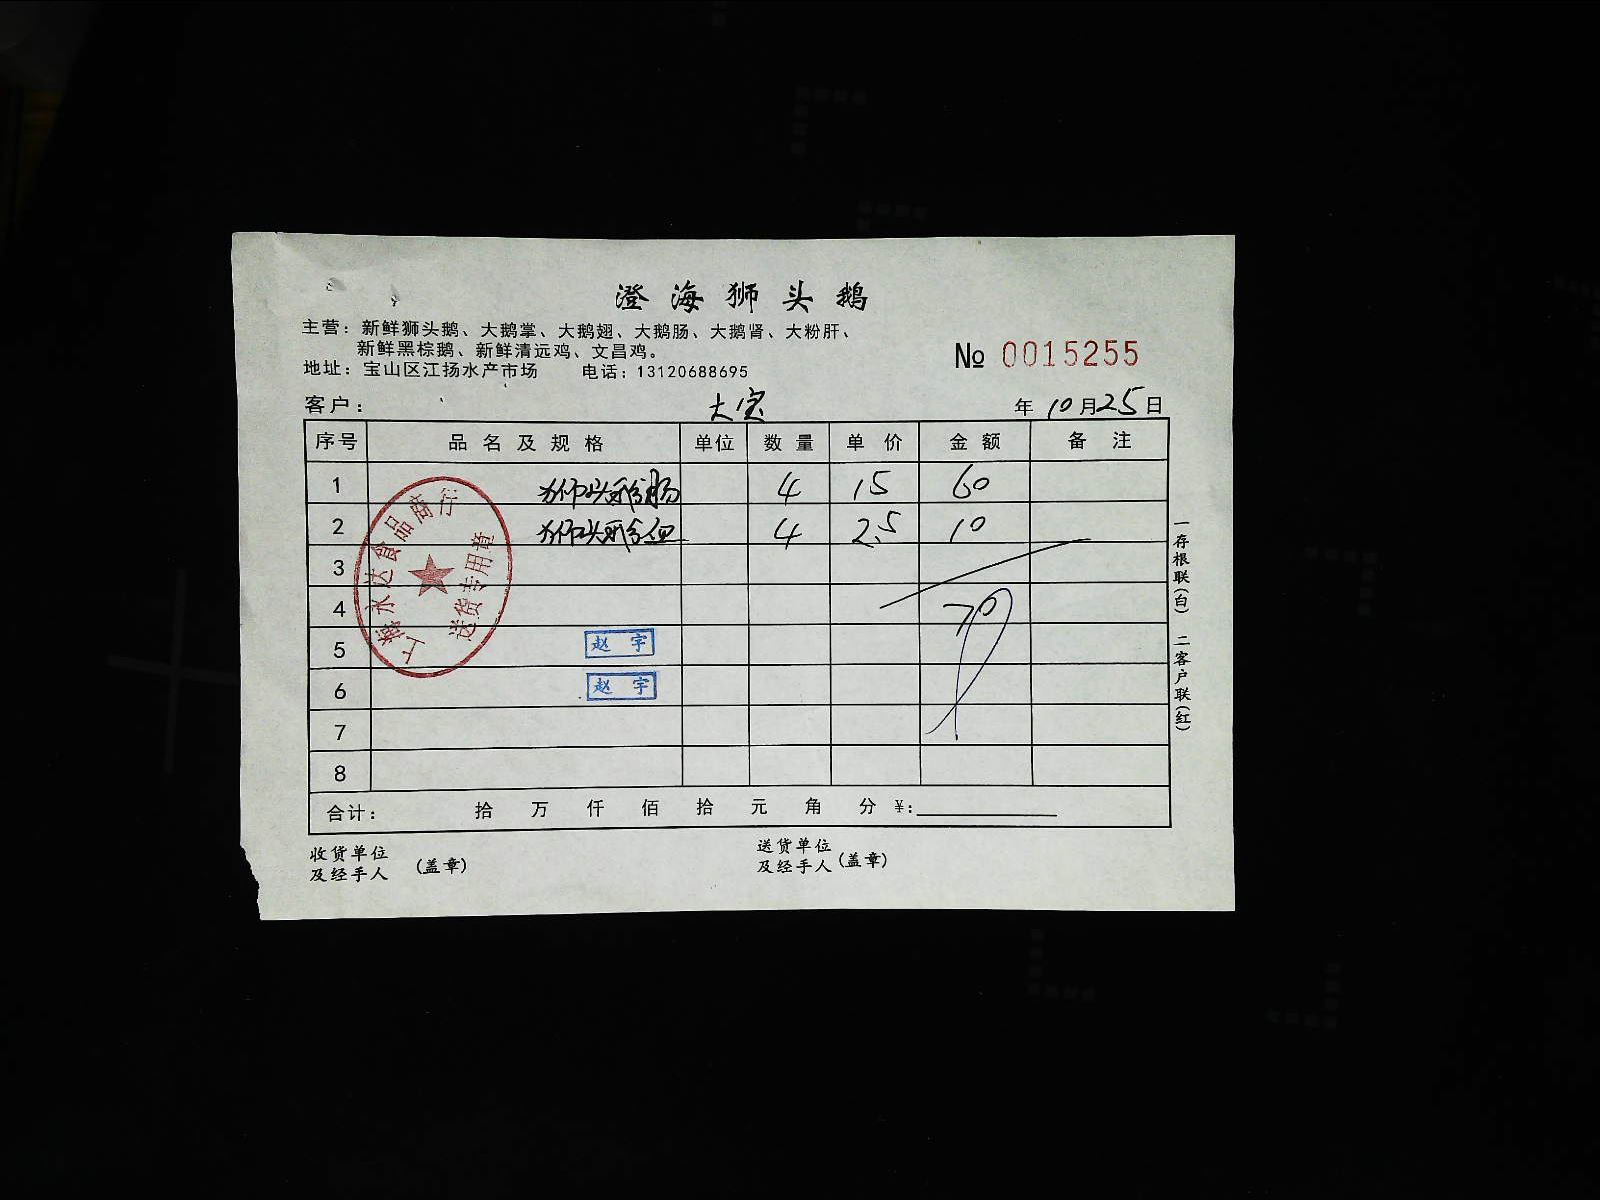 澄海狮头鹅
主营：新鲜狮头鹅、大鹅掌、大鹅翅、大鹅肠、大鹅肾、大粉肝、
新鲜黑棕鹅、新鲜清远鸡、文昌鸡。
地址：宝山区江扬水产市场 电话：13120688695
№ 0015255
客户： 大宝 年 10 月 25 日
序号 品名及规格 单位 数量 单价 金额 备注
1 狮头鹅肠 4 15 60
2 狮头鹅血 4 2.5 10
3
4 70
5 赵宇
6 赵宇
7
8
合计： 拾 万 仟 佰 拾 元 角 分 ¥：
收货单位
及经手人 （盖章）
送货单位
及经手人（盖章）
一存根联（白） 二客户联（红）
上海永达食品商行
送货专用章